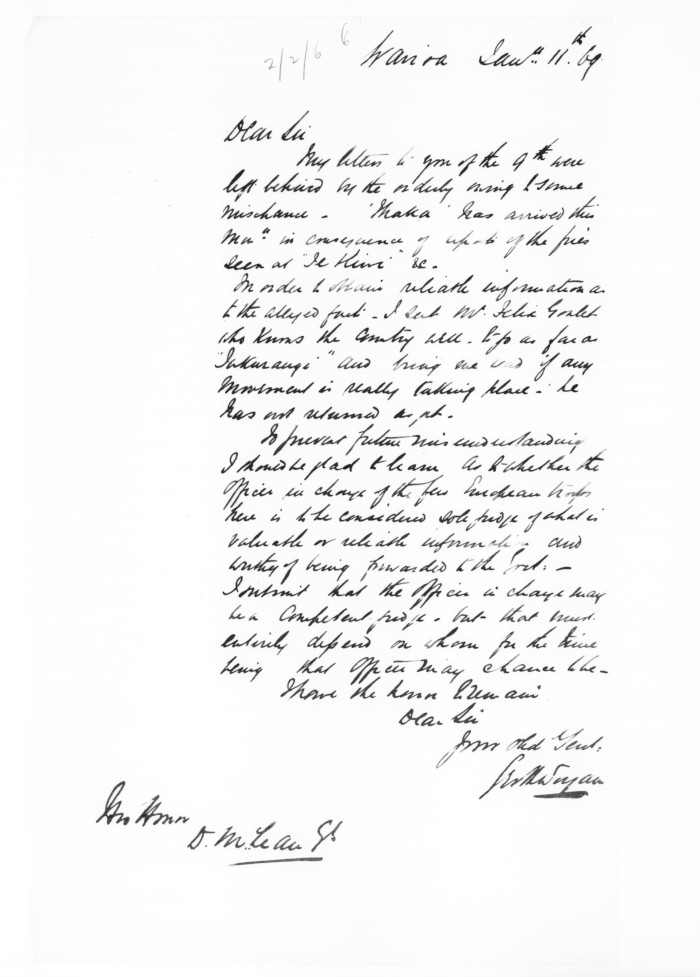 2/2/6 6
Wairoa Jany. 11th. 69
Dear Sir
My letters to you of the 9th were
left behind by the orderly owing to some
mischance - has arrived this
in consequence of reports of the fires
seen at "Te Kiwi" &c.
In order to obtain reliable information as
to the alleged fact - I sent Mr. Felix Goulet
who knows the country well - to go as far as
and bring me word if any
movement is really taking place - he
has not returned as yet.
To prevent future misunderstanding
I should be glad to learn as to whether the
Officer in charge of the few European troops
here is to be considered sole judge of what is
valuable or reliable information and
worthy of being forwarded to the Govt: -
I submit that the Officer in charge may
be a competent judge - but that must
entirely depend on whom for the time
being that Officer may chance to be -
I have the honor to remain
Dear Sir
Your obd Servt:
His Honor
D. McLean